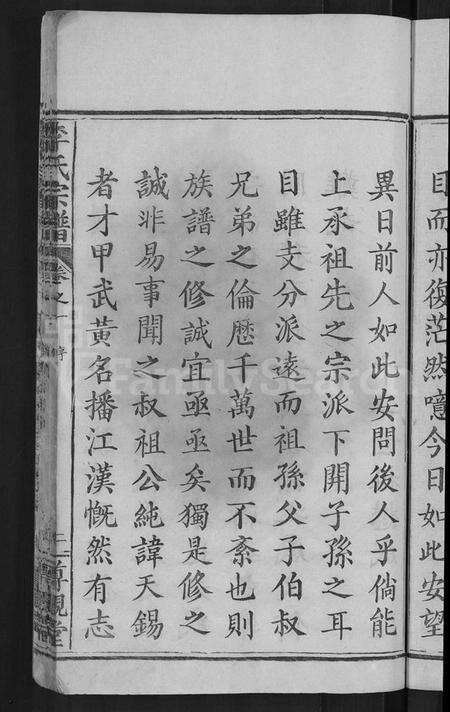 目而亦復茫然噫今日如此安望
異日前人如此安問後人乎倘能
上承祖先之宗派下開子孫之耳
目雖支分派遠而祖孫父子伯叔
兄弟之倫歷千萬世而不紊也則
族譜之修誠宜亟亟矣獨是修之
誠非易事聞之叔祖公純諱天錫
者才甲武黃名播江漢慨然有志
李氏宗譜
卷之一 序
FamilySearch